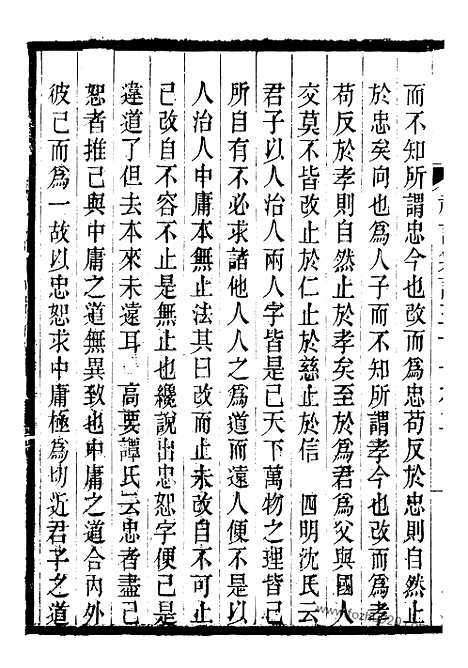 而不知所謂忠今也改而爲忠苟反於忠則自然止
於忠矣向也爲人子而不知所謂孝今也改而爲孝
苟反於孝則自然止於孝矣至於爲君爲父與國人
交莫不皆改止於仁止於慈止於信　四明沈氏云
君子以人治人兩人字皆是己天下萬物之理皆己
所自有不必求諸他人人之爲道而遠人便不是以
人治人中庸本無止法其曰改而止未改自不可止
己改自不容不止是無止也纔說出忠恕字便己是
違道了但去本來未遠耳　高要譚氏云忠者盡己
恕者推己與中庸之道無異致也中庸之道合內外
彼己而爲一故以忠恕求中庸極爲切近君子之道